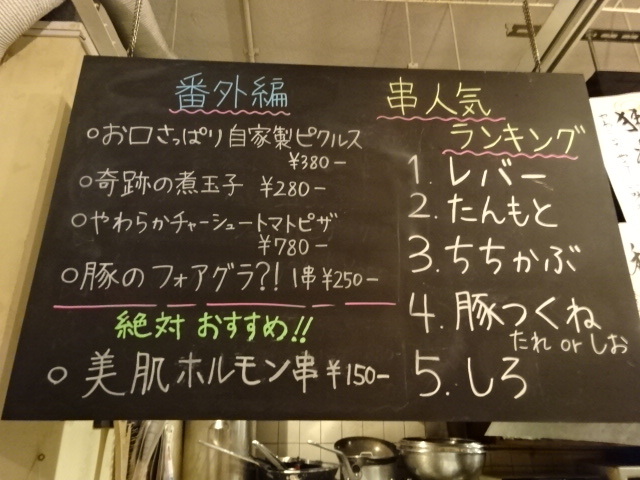 番外編
○お口さっぱり自家製ピクルス
¥380-
○奇跡の煮玉子 ¥280-
○やわらかチャーシュートマトピザ
¥780-
○豚のフォアグラ?! 1串¥250-
絶対おすすめ!!
○美肌ホルモン串¥150-
串人気
ランキング
1.レバー
2.たんもと
3.ちちかぶ
4.豚つくね
たれ or しお
5.しろ